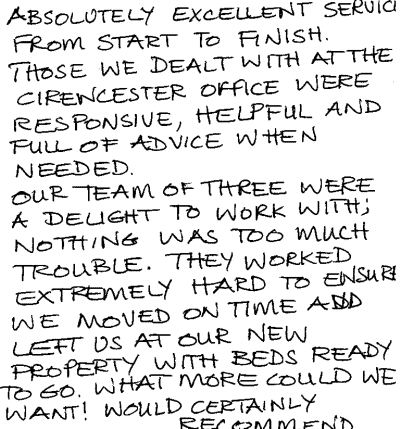 ABSOLUTELY EXCELLENT SERVICE
FROM START TO FINISH.
THOSE WE DEALT WITH AT THE
CIRENCESTER OFFICE WERE
RESPONSIVE, HELPFUL AND
FULL OF ADVICE WHEN
NEEDED.
OUR TEAM OF THREE WERE
A DELIGHT TO WORK WITH;
NOTHING WAS TOO MUCH
TROUBLE. THEY WORKED
EXTREMELY HARD TO ENSURE
WE MOVED ON TIME ADD
LEFT US AT OUR NEW
PROPERTY WITH BEDS READY
TO GO. WHAT MORE COULD WE
WANT! WOULD CERTAINLY
RECOMMEND